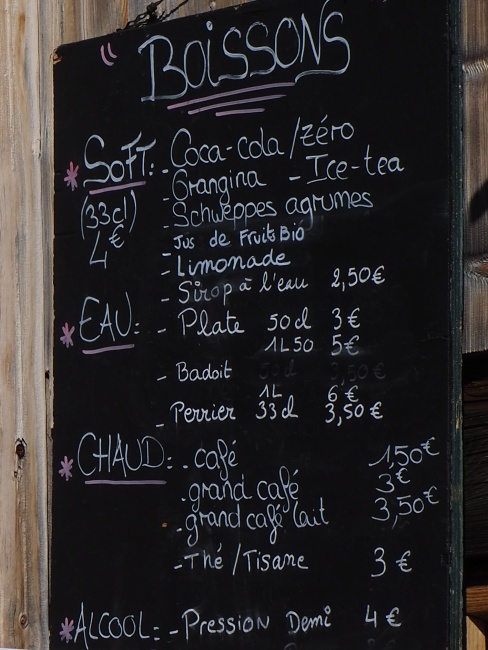 BOISSONS
* SOFT: - Coca-cola/zéro
- Orangina - Ice-tea
(33cl) - Schweppes agrumes
4€ - Jus de Fruits Bio
- Limonade
- Sirop à l'eau 2,50€
* EAU: - Plate 50cl 3€
1L50 5€
- Badoit 3,50€
1L 6€
- Perrier 33cl 3,50€
* CHAUD: . café 1,50€
. grand café 3€
. grand café lait 3,50€
- Thé/Tisane 3€
* ALCOOL: - Pression Demi 4€